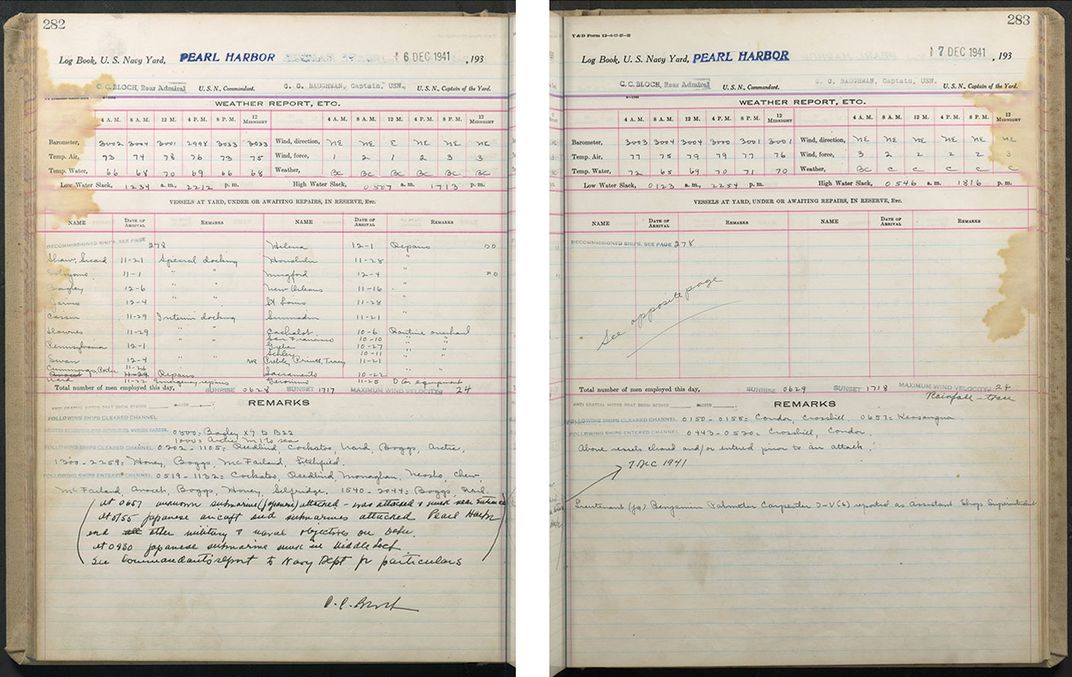 282
Log Book, U. S. Navy Yard, PEARL HARBOR 6 DEC 1941 , 193
C. C. BLOCH, Rear Admiral U. S. N., Commandant. C. G. BAUGHMAN, Captain, USN, U. S. N., Captain of the Yard.
WEATHER REPORT, ETC.
4 A. M. 8 A. M. 12 M. 4 P. M. 8 P. M. 12 MIDNIGHT 4 A. M. 8 A. M. 12 M. 4 P. M. 8 P. M. 12 MIDNIGHT
Barometer, 3002 3004 3001 2998 3033 3033 Wind, direction, NE NE C NE NE NE
Temp. Air, 73 74 78 76 73 75 Wind, force, 1 2 1 2 3 3
Temp. Water, 66 68 70 69 66 68 Weather, BC BC BC BC BC BC
Low Water Slack, 1234 a. m., 2212 p. m. High Water Slack, 0507 a. m. 1713 p. m.
VESSELS AT YARD, UNDER OR AWAITING REPAIRS, IN RESERVE, Etc.
NAME DATE OF ARRIVAL REMARKS NAME DATE OF ARRIVAL REMARKS
RECOMMISSIONED SHIPS, SEE PAGE 278 Helena 12-1 Repairs
Shaw, 11-21 Special docking Honolulu 11-28 "
11-1 " " Mugford 12-4 "
Bagley 12-6 " " New Orleans 11-16 "
Jarvis 12-4 " " St Louis 11-28 "
Cassin 11-29 Interim docking 11-21
Downes 11-29 " " Cachalot 10-6 Routine overhaul
San Francisco 10-10 " "
Pennsylvania 12-1 " " 10-27 " "
Schley 10-11 " "
Swan 12-4 " " Preble, Pruitt, Tracy 11-21 "
Cummings 11-26
Repairs Sacramento 10-22 "
Ward 11-22 Emergency repairs Geronimo 11-25 D G equipment
Total number of men employed this day, SUNRISE 0628 SUNSET 1717 MAXIMUM WIND VELOCITY 24
REMARKS
FOLLOWING SHIPS CLEARED CHANNEL
0800: Bagley X7 to B22
1000: Arctic M1 to sea
FOLLOWING SHIPS CLEARED CHANNEL 0202-1105: Reedbird, Cockatoo, Ward, Boggs, Arctic,
1300-2259: Hovey, Boggs, McFarland, Litchfield.
FOLLOWING SHIPS ENTERED CHANNEL 0519-1132: Cockatoo, Reedbird, Monaghan, Neosho, Chew
McFarland, Avocet, Boggs, Hovey, Selfridge. 1540-2044: Boggs, Rail.
at 0657 unknown submarine (Japanese) attacked - was attacked & sunk near Entrance
at 0755 Japanese aircraft and submarines attacked Pearl Harbor
and all other military & naval objectives on Oahu.
at 0930 Japanese submarine sunk in Middle Loch
see Commandants report to Navy Dept for particulars
C. C. Bloch
283
Y&D Form
Log Book, U. S. Navy Yard, PEARL HARBOR 7 DEC 1941 , 193
C. C. BLOCH, Rear Admiral U. S. N., Commandant. C. G. BAUGHMAN, Captain, USN. U. S. N., Captain of the Yard.
WEATHER REPORT, ETC.
4 A. M. 8 A. M. 12 M. 4 P. M. 8 P. M. 12 MIDNIGHT 4 A. M. 8 A. M. 12 M. 4 P. M. 8 P. M. 12 MIDNIGHT
Barometer, 3003 3004 3004 3000 3001 3001 Wind, direction, NE NE NE NE NE NE
Temp. Air, 77 75 79 79 77 76 Wind, force, 3 2 2 2 2 3
Temp. Water, 72 65 69 70 71 70 Weather, BC C C C C C
Low Water Slack, 0123 a. m., 2254 p. m. High Water Slack, 0546 a. m. 1816 p. m.
VESSELS AT YARD, UNDER OR AWAITING REPAIRS, IN RESERVE, Etc.
NAME DATE OF ARRIVAL REMARKS NAME DATE OF ARRIVAL REMARKS
RECOMMISSIONED SHIPS, SEE PAGE 278
See opposite page
Total number of men employed this day, SUNRISE 0629 SUNSET 1718 MAXIMUM WIND VELOCITY 24
Rainfall - trace
REMARKS
FOLLOWING SHIPS CLEARED CHANNEL 0150-0155: Condor, Crossbill, 0657: Keosanqua
FOLLOWING SHIPS ENTERED CHANNEL 0443-0520: Crossbill, Condor.
Above vessels cleared and/or entered prior to an attack.
7 DEC 1941
Lieutenant (jg) Benjamin Palmeter Carpenter D-V(S) reported as Assistant Shop Superintendent